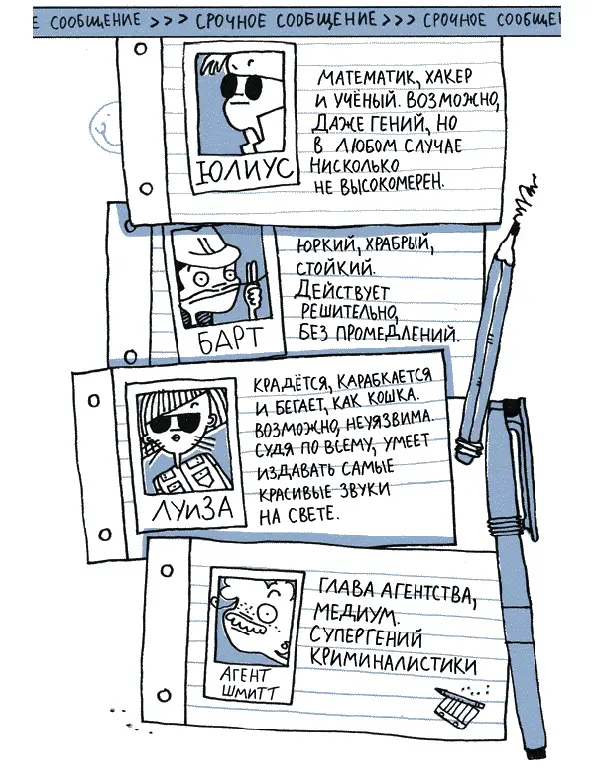 Е СООБЩЕНИЕ >>> СРОЧНОЕ СООБЩЕНИЕ >>> СРОЧНОЕ СООБЩЕН
МАТЕМАТИК, ХАКЕР
И УЧЁНЫЙ. ВОЗМОЖНО,
ДАЖЕ ГЕНИЙ, НО
В ЛЮБОМ СЛУЧАЕ
НИСКОЛЬКО
НЕ ВЫСОКОМЕРЕН.
ЮЛИУС
ЮРКИЙ, ХРАБРЫЙ,
СТОЙКИЙ.
ДЕЙСТВУЕТ
РЕШИТЕЛЬНО,
БЕЗ ПРОМЕДЛЕНИЙ.
БАРТ
КРАДЁТСЯ, КАРАБКАЕТСЯ
И БЕГАЕТ, КАК КОШКА.
ВОЗМОЖНО, НЕУЯЗВИМА.
СУДЯ ПО ВСЕМУ, УМЕЕТ
ИЗДАВАТЬ САМЫЕ
КРАСИВЫЕ ЗВУКИ
НА СВЕТЕ.
ЛУИЗА
ГЛАВА АГЕНТСТВА,
МЕДИУМ.
СУПЕРГЕНИЙ
КРИМИНАЛИСТИКИ
АГЕНТ
ШМИТТ